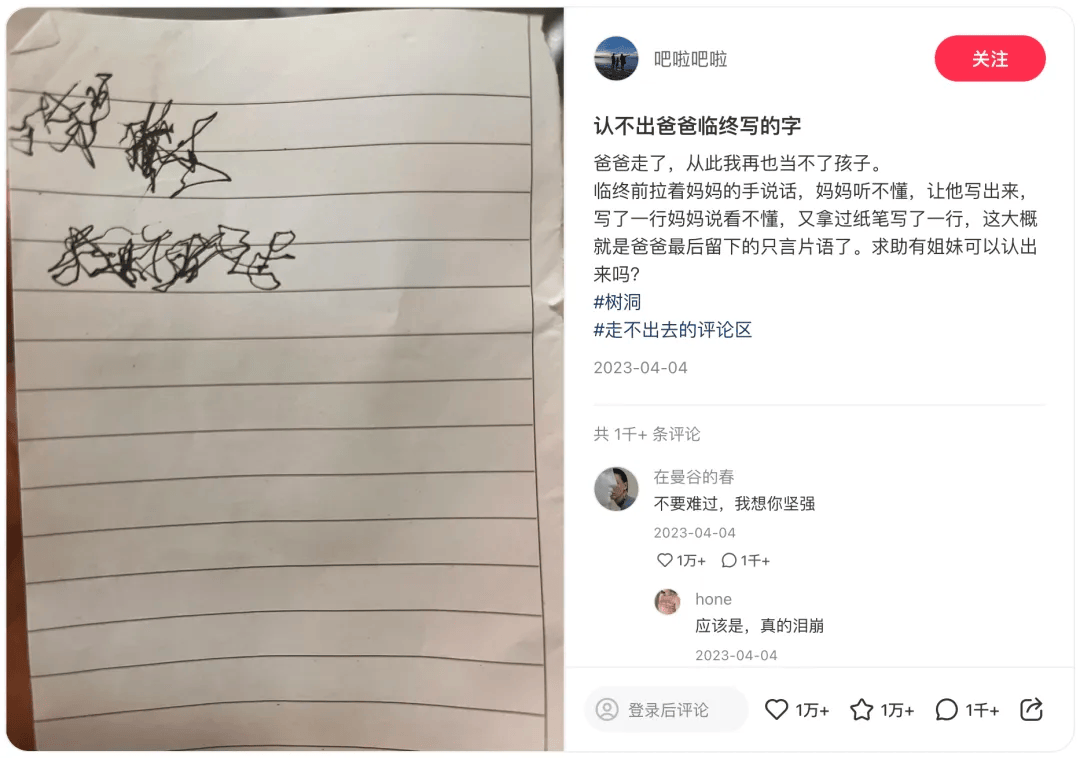 吧啦吧啦
关注
认不出爸爸临终写的字
爸爸走了，从此我再也当不了孩子。
临终前拉着妈妈的手说话，妈妈听不懂，让他写出来，
写了一行妈妈说看不懂，又拿过纸笔写了一行，这大概
就是爸爸最后留下的只言片语了。求助有姐妹可以认出
来吗?
#树洞
#走不出去的评论区
2023-04-04
共 1千+ 条评论
在曼谷的春
不要难过，我想你坚强
2023-04-04
1万+ 1千+
hone
应该是，真的泪崩
2023-04-04
登录后评论 1万+ 1万+ 1千+